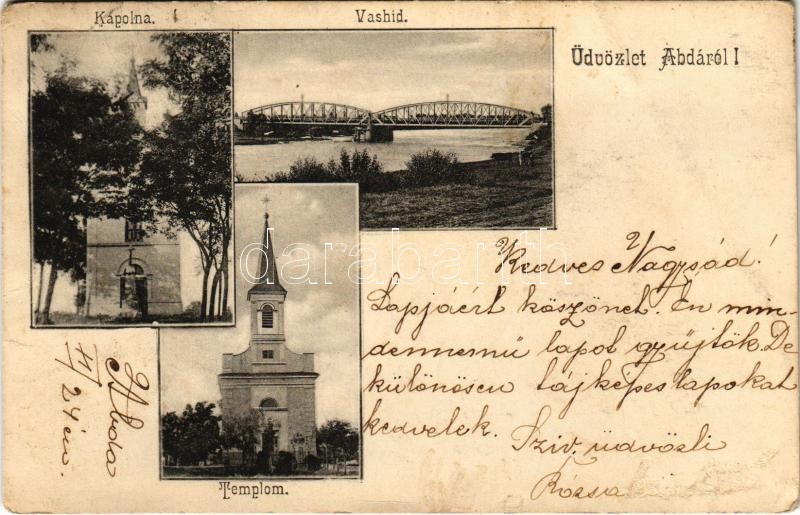 Kápolna.
Vashid.
Üdvözlet Abdáról!
darabanth
Kedves Nagysád!
Lapjáért köszönet. Én min-
dennemű lapot gyűjtök. De
különösen tájképes lapokat
kedvelek.
Sziv. üdvözli
Rózsa
Abda
24 én.
Templom.